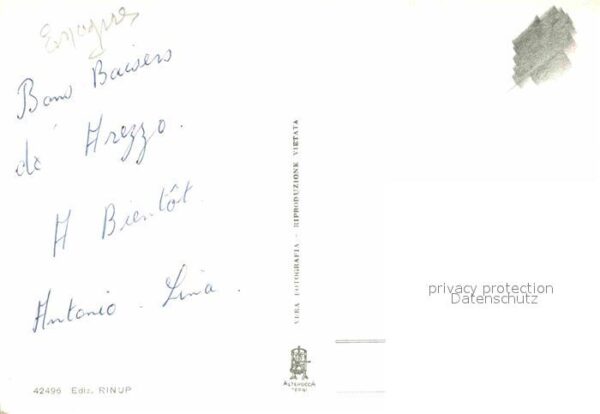 Bons Baisers
de' Arezzo.
A Bientôt.
Antonio - Lina.
VERA FOTOGRAFIA - RIPRODUZIONE VIETATA
privacy protection
Datenschutz
ALTEROCCA
TERNI
42496 Ediz. RINUP